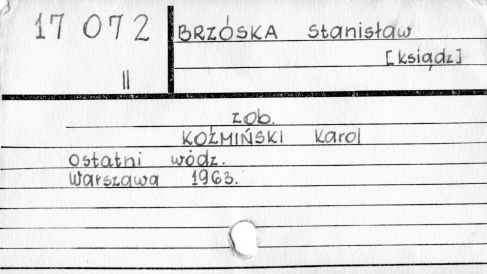 17 072
BRZÓSKA Stanisław
[ksiądz]
II
zob.
KOŹMIŃSKI Karol
Ostatni wódz.
Warszawa 1963.